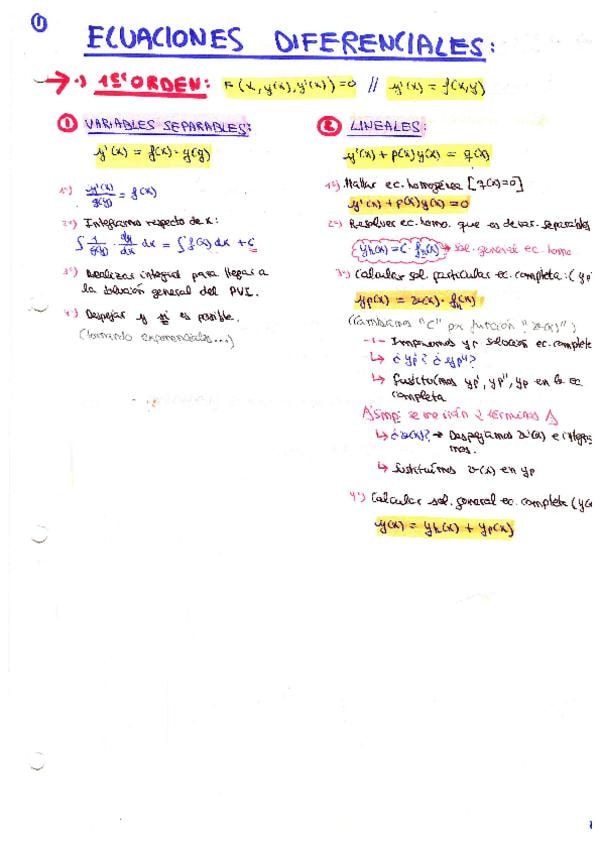 ①
ECUACIONES DIFERENCIALES:
→ •) 1er ORDEN: F(x, y(x), y'(x)) = 0 // y'(x) = f(x,y)
① VARIABLES SEPARABLES:
y'(x) = f(x) · y(y)
1º) y'(x)/g(y) = f(x)
2º) Integramos respecto de x:
∫ 1/g(y) · dy/dx dx = ∫ f(x) dx + C
3º) Realizar integral para llegar a
la solución general del PVI.
4º) Despejar y si es posible.
(tomando exponenciales...)
② LINEALES:
y'(x) + p(x) y(x) = q(x)
1º) Hallar ec. homogénea [q(x)=0]
y'(x) + p(x) y(x) = 0
2º) Resolver ec. homo. que es de var. separables
yh(x) = C · fh(x) → sol. general ec. homo
3º) Calcular sol. particular ec. completa: (yp
yp(x) = v(x) · fh(x)
(Cambiamos "C" por función "v(x)")
-1- Imponemos yp solución ec. completa
↳ ¿yp'? ¿yp''?
↳ Sustituimos yp', yp'', yp en la ec
completa
se 2 términos
↳ ¿v(x)? → Despejamos v'(x) e integra
mos.
↳ Sustituimos v(x) en yp
4º) Calcular sol. general ec. completa (y(
y(x) = yh(x) + yp(x)